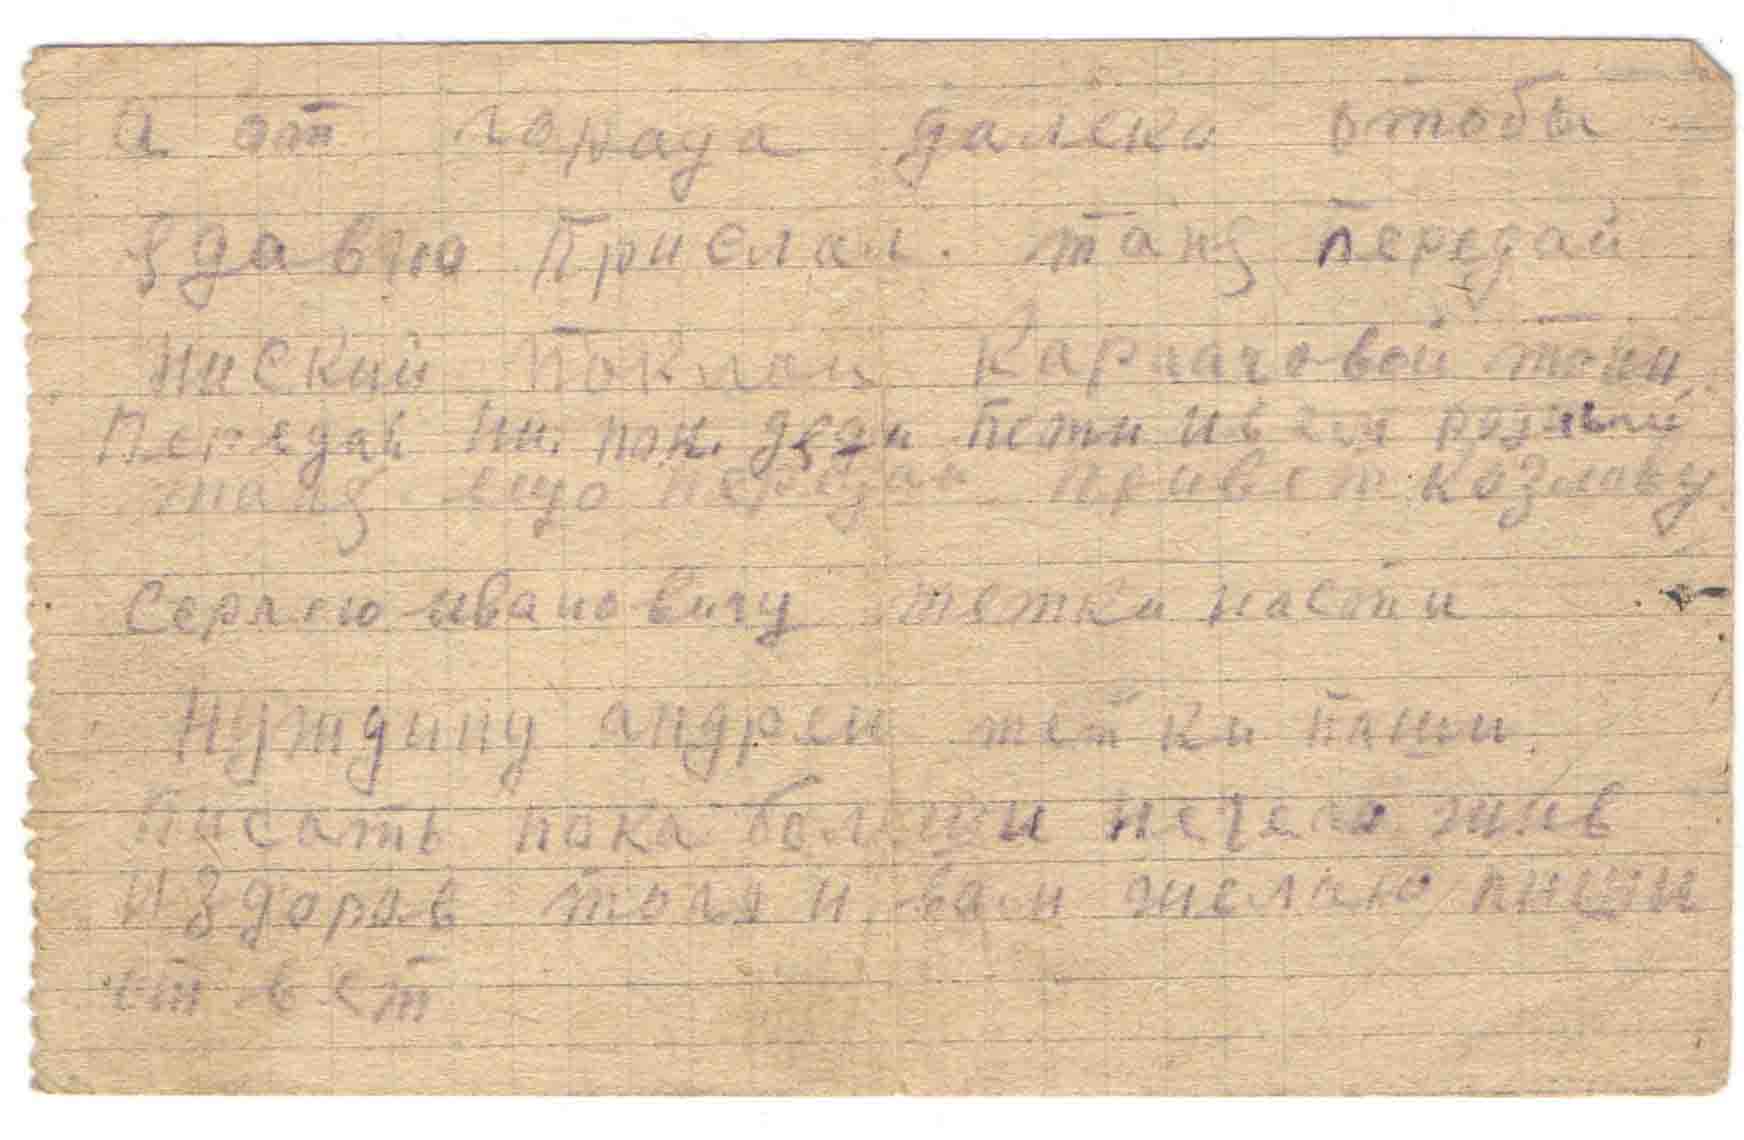 а от горада далеко отобы
здавно Прислал. таня передай
ниский поклон Каргачовой тони.
Передай ни. пок. деди Пети и всем родным
таня. ещо передай привет козлову
Сергею ивановичу тетки насти
Нуждину андрею тетки паши.
Писать пока больши нечего жив
И здоров того и вам желаю пиши
ответ